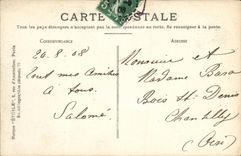 CARTE POSTALE
Tous les pays étrangers n'acceptent pas la correspondance au recto. Se renseigner à la poste.
CORRESPONDANCE
ADRESSE
26-8-08
tout mes Amitiés
à tous.
Salomé
Monsieur et
Madame Bara
Bois St Denis
Chantilly
(Oise)